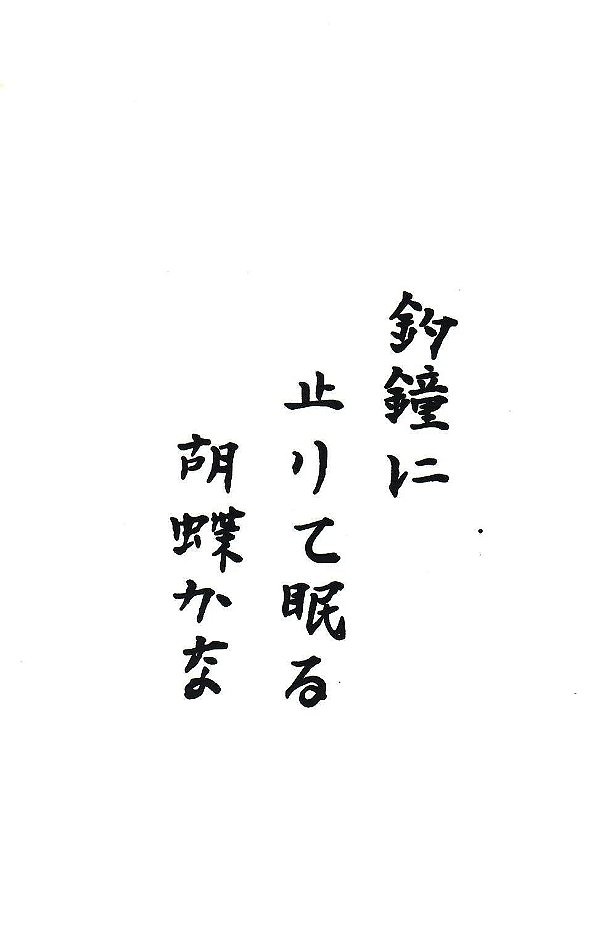 釣鐘に
止りて眠る
胡蝶かな